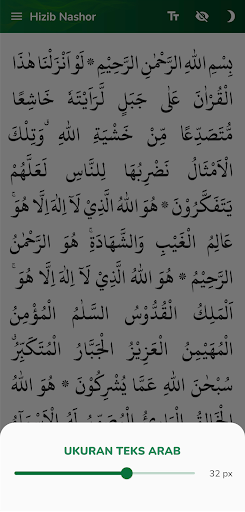 Hizib Nashor
بِسْمِ اللهِ الرَّحْمٰنِ الرَّحِيْمِ ۞ لَوْ اَنْزَلْنَا هٰذَا
الْقُرْاٰنَ عَلٰى جَبَلٍ لَّرَاَيْتَهٗ خَاشِعًا
مُّتَصَدِّعًا مِّنْ خَشْيَةِ اللهِ ۗ وَتِلْكَ
الْاَمْثَالُ نَضْرِبُهَا لِلنَّاسِ لَعَلَّهُمْ
يَتَفَكَّرُوْنَ ۞ هُوَ اللهُ الَّذِيْ لَآ اِلٰهَ اِلَّا هُوَ ۚ
عَالِمُ الْغَيْبِ وَالشَّهَادَةِ ۚ هُوَ الرَّحْمٰنُ
الرَّحِيْمُ ۞ هُوَ اللهُ الَّذِيْ لَآ اِلٰهَ اِلَّا هُوَ ۚ
اَلْمَلِكُ الْقُدُّوْسُ السَّلٰمُ الْمُؤْمِنُ
الْمُهَيْمِنُ الْعَزِيْزُ الْجَبَّارُ الْمُتَكَبِّرُ ۗ
سُبْحٰنَ اللهِ عَمَّا يُشْرِكُوْنَ ۞ هُوَ اللهُ
الْخَالِقُ الْبَارِئُ الْمُصَوِّرُ لَهُ الْاَسْمَاۤءُ
UKURAN TEKS ARAB
32 px